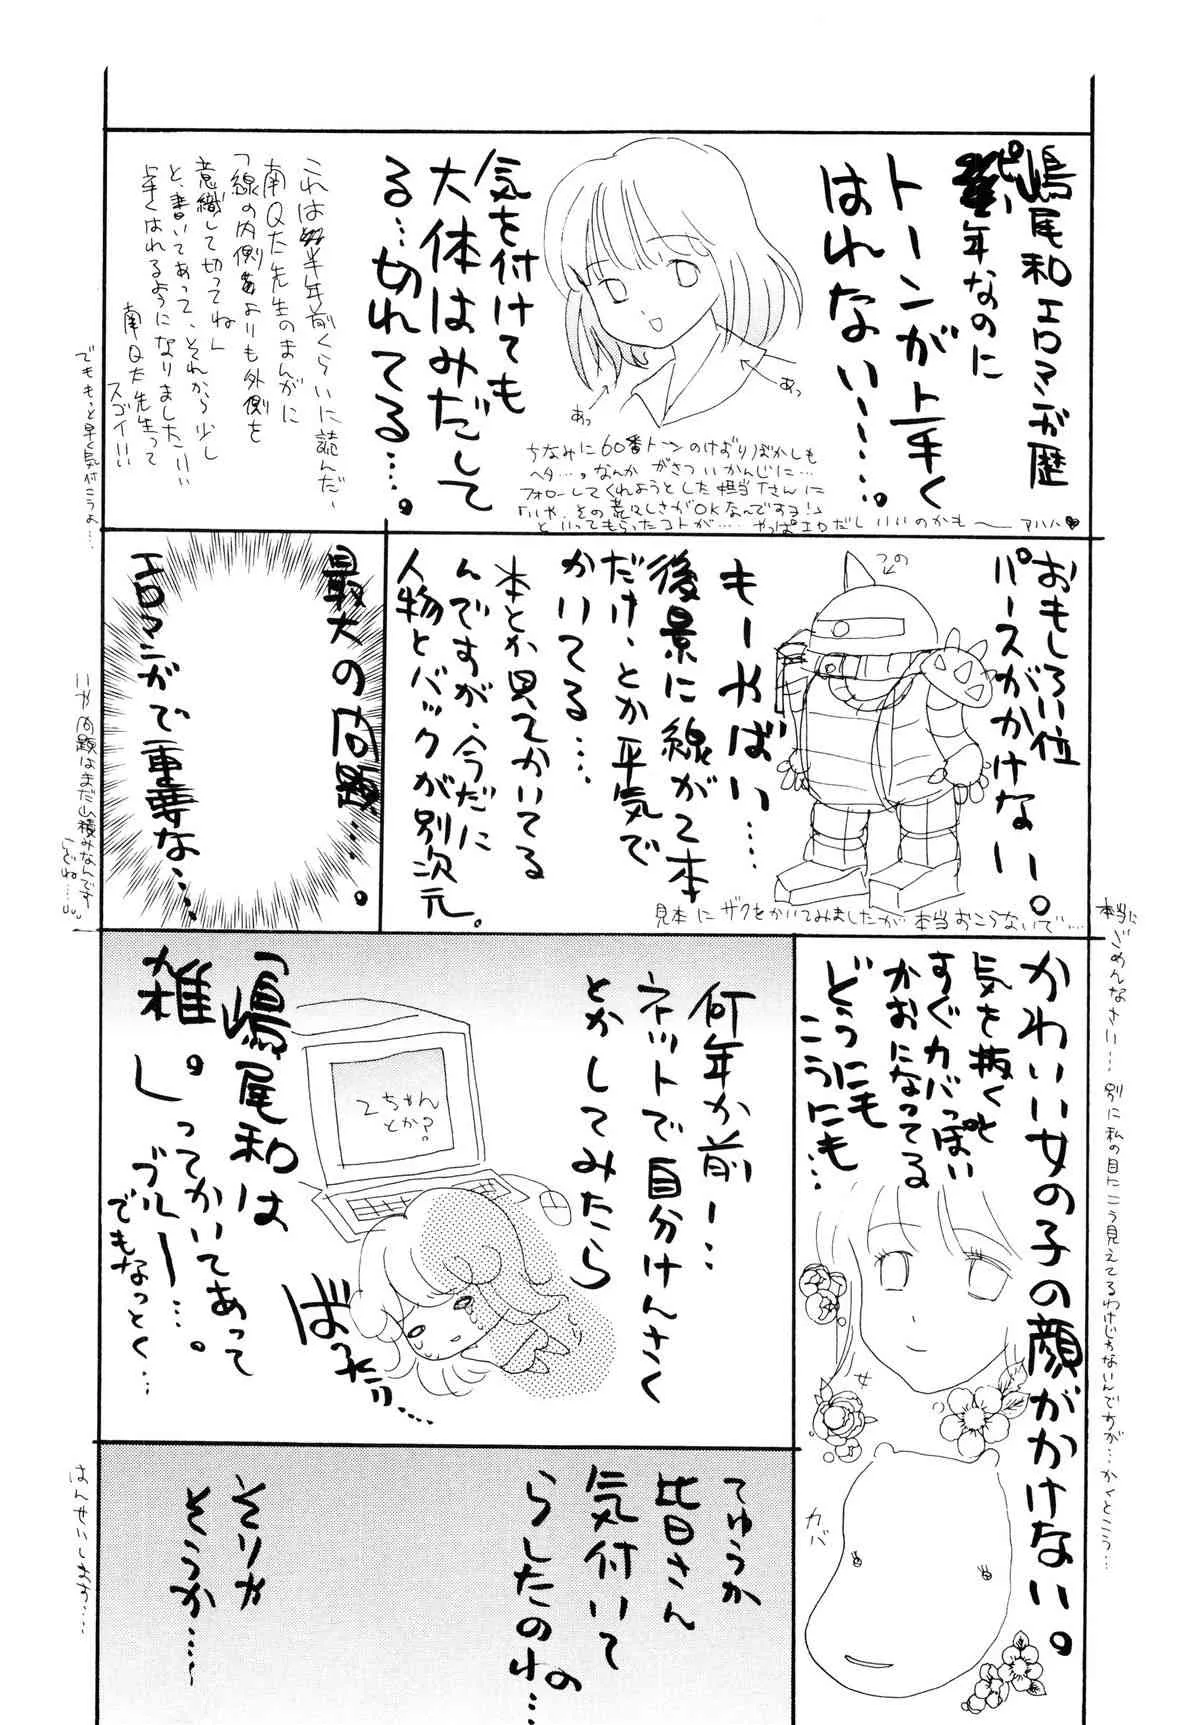 嶋尾和エロマンガ歴
ピー年なのに
トーンが上手く
はれない……。
あっ
あっ
気を付けても
大体はみだして
る…切れてる…。
ちなみに60番トーンのけずりぼかしも
ヘタ…。なんか がさついかんじに…
フォローしてくれようとした担当Tさんに
「いや、その荒々しさがOKなんですヨ!」
といってもらったコトが…。やっぱエロだしいいのかも〜 アハハ♥
これは半年前くらいに読んだ、
南Q太先生のまんがに
「線の内側よりも外側を
意識して切ってね」
と、書いてあって、それから少し
上手くはれるようになりました!!
南Q太先生って
スゴイ!!
でももっと早く気付こうよ…。
おもしろい位
パースがかけない。
つの
もーやばい…
後景に線がて本
だけ、とか平気で
かいてる…
本とか見てかいてる
んですが、今だに
人物とバックが別次元。
見本にザクをかいてみましたが 本当おこらないで…
本当に
ごめんなさい… 別に私の目にこう見えてるわけじゃないんですが… かくとこう…
最大の問題…。
エロマンガで重要な…
いや問題はまだ山積みなんです
けどね…
かわいい女の子の顔がかけない。
気を抜くと
すぐカバっぽい
かおになってる
どうにも
こうにも…
カバ
何年か前ー…
ネットで自分けんさく
とかしてみたら
2ちゃん
とか?
ばったり……
「嶋尾和は
雑。」ってかいてあって
ブルー…。
でもなっとく…
てゆうか
皆さん
気付いて
らしたのねの…
そりゃ
そうか……
はんせいします…